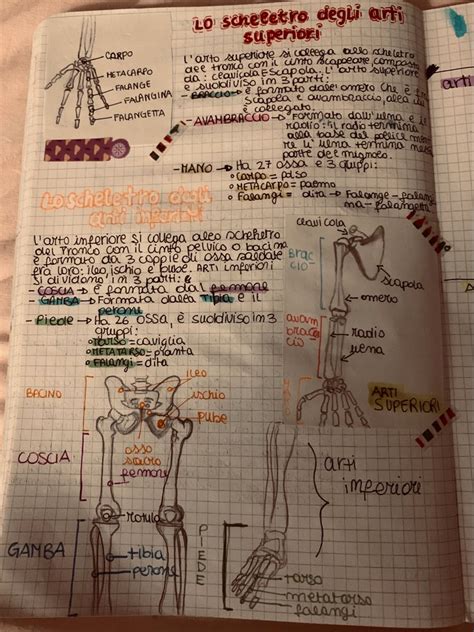 Lo scheletro degli arti
superiori
CARPO
METACARPO
FALANGE
FALANGINA
FALANGETTA
L'arto superiore si collega allo scheletro
del tronco con il cinto scapolare, composto
da: clavicola e scapola. L'arto superiore
è suddiviso in 3 parti:
- BRACCIO → è formato dall'omero che è fra
scapola e avambraccio, alla
è collegato.
- AVAMBRACCIO → Formato dall'ulna e il
radio: il radio termina
alla base del pollice
re l'ulna termina
parte del mignolo.
- MANO → Ha 27 ossa e 3 gruppi:
• Carpo = polso
• METACARPO = palmo
• Falangi = dita → Falange - falangi
na - falangetta
Lo scheletro degli
arti inferiori
L'arto inferiore si collega allo scheletro
del tronco con il cinto pelvico o bacino
è formato da 3 coppie di ossa saldate
fra loro: ileo, ischio e pube. ARTI inferiori
si dividono in 3 parti:
- COSCIA → è formata dal femore
- GAMBA → Formata dalla tibia e il
perone
- Piede → Ha 26 ossa, è suddiviso in 3
gruppi:
• Tarso = caviglia
• METATARSO = pianta
• Falangi = dita
clavicola
Brac
cio
scapola
omero
avam
bracc
cio
radio
ulna
ARTI
SUPERIORI
BACINO
ileo
ischio
pube
osso
sacro
COSCIA
femore
rotula
GAMBA
tibia
perone
PIEDE
arti
inferiori
tarso
metatarso
falangi
arti